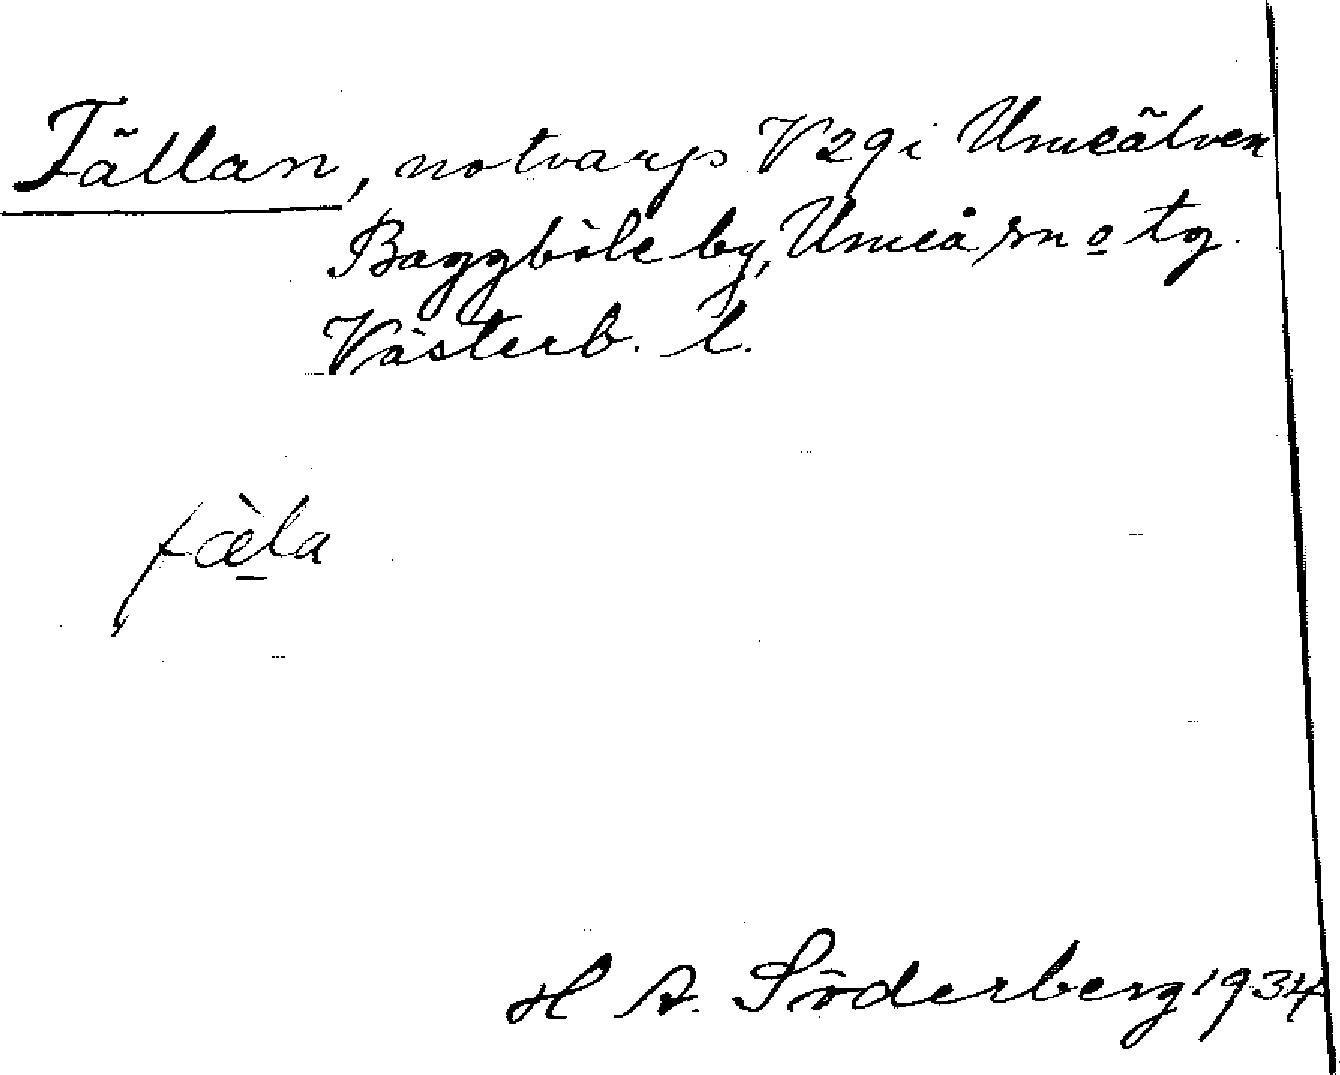 Fällan, notvarp V 29 i Umeälven
Baggböle by, Umeå sn o tg.
Västerb. l.
fæ̀la
H A. Söderberg 1934